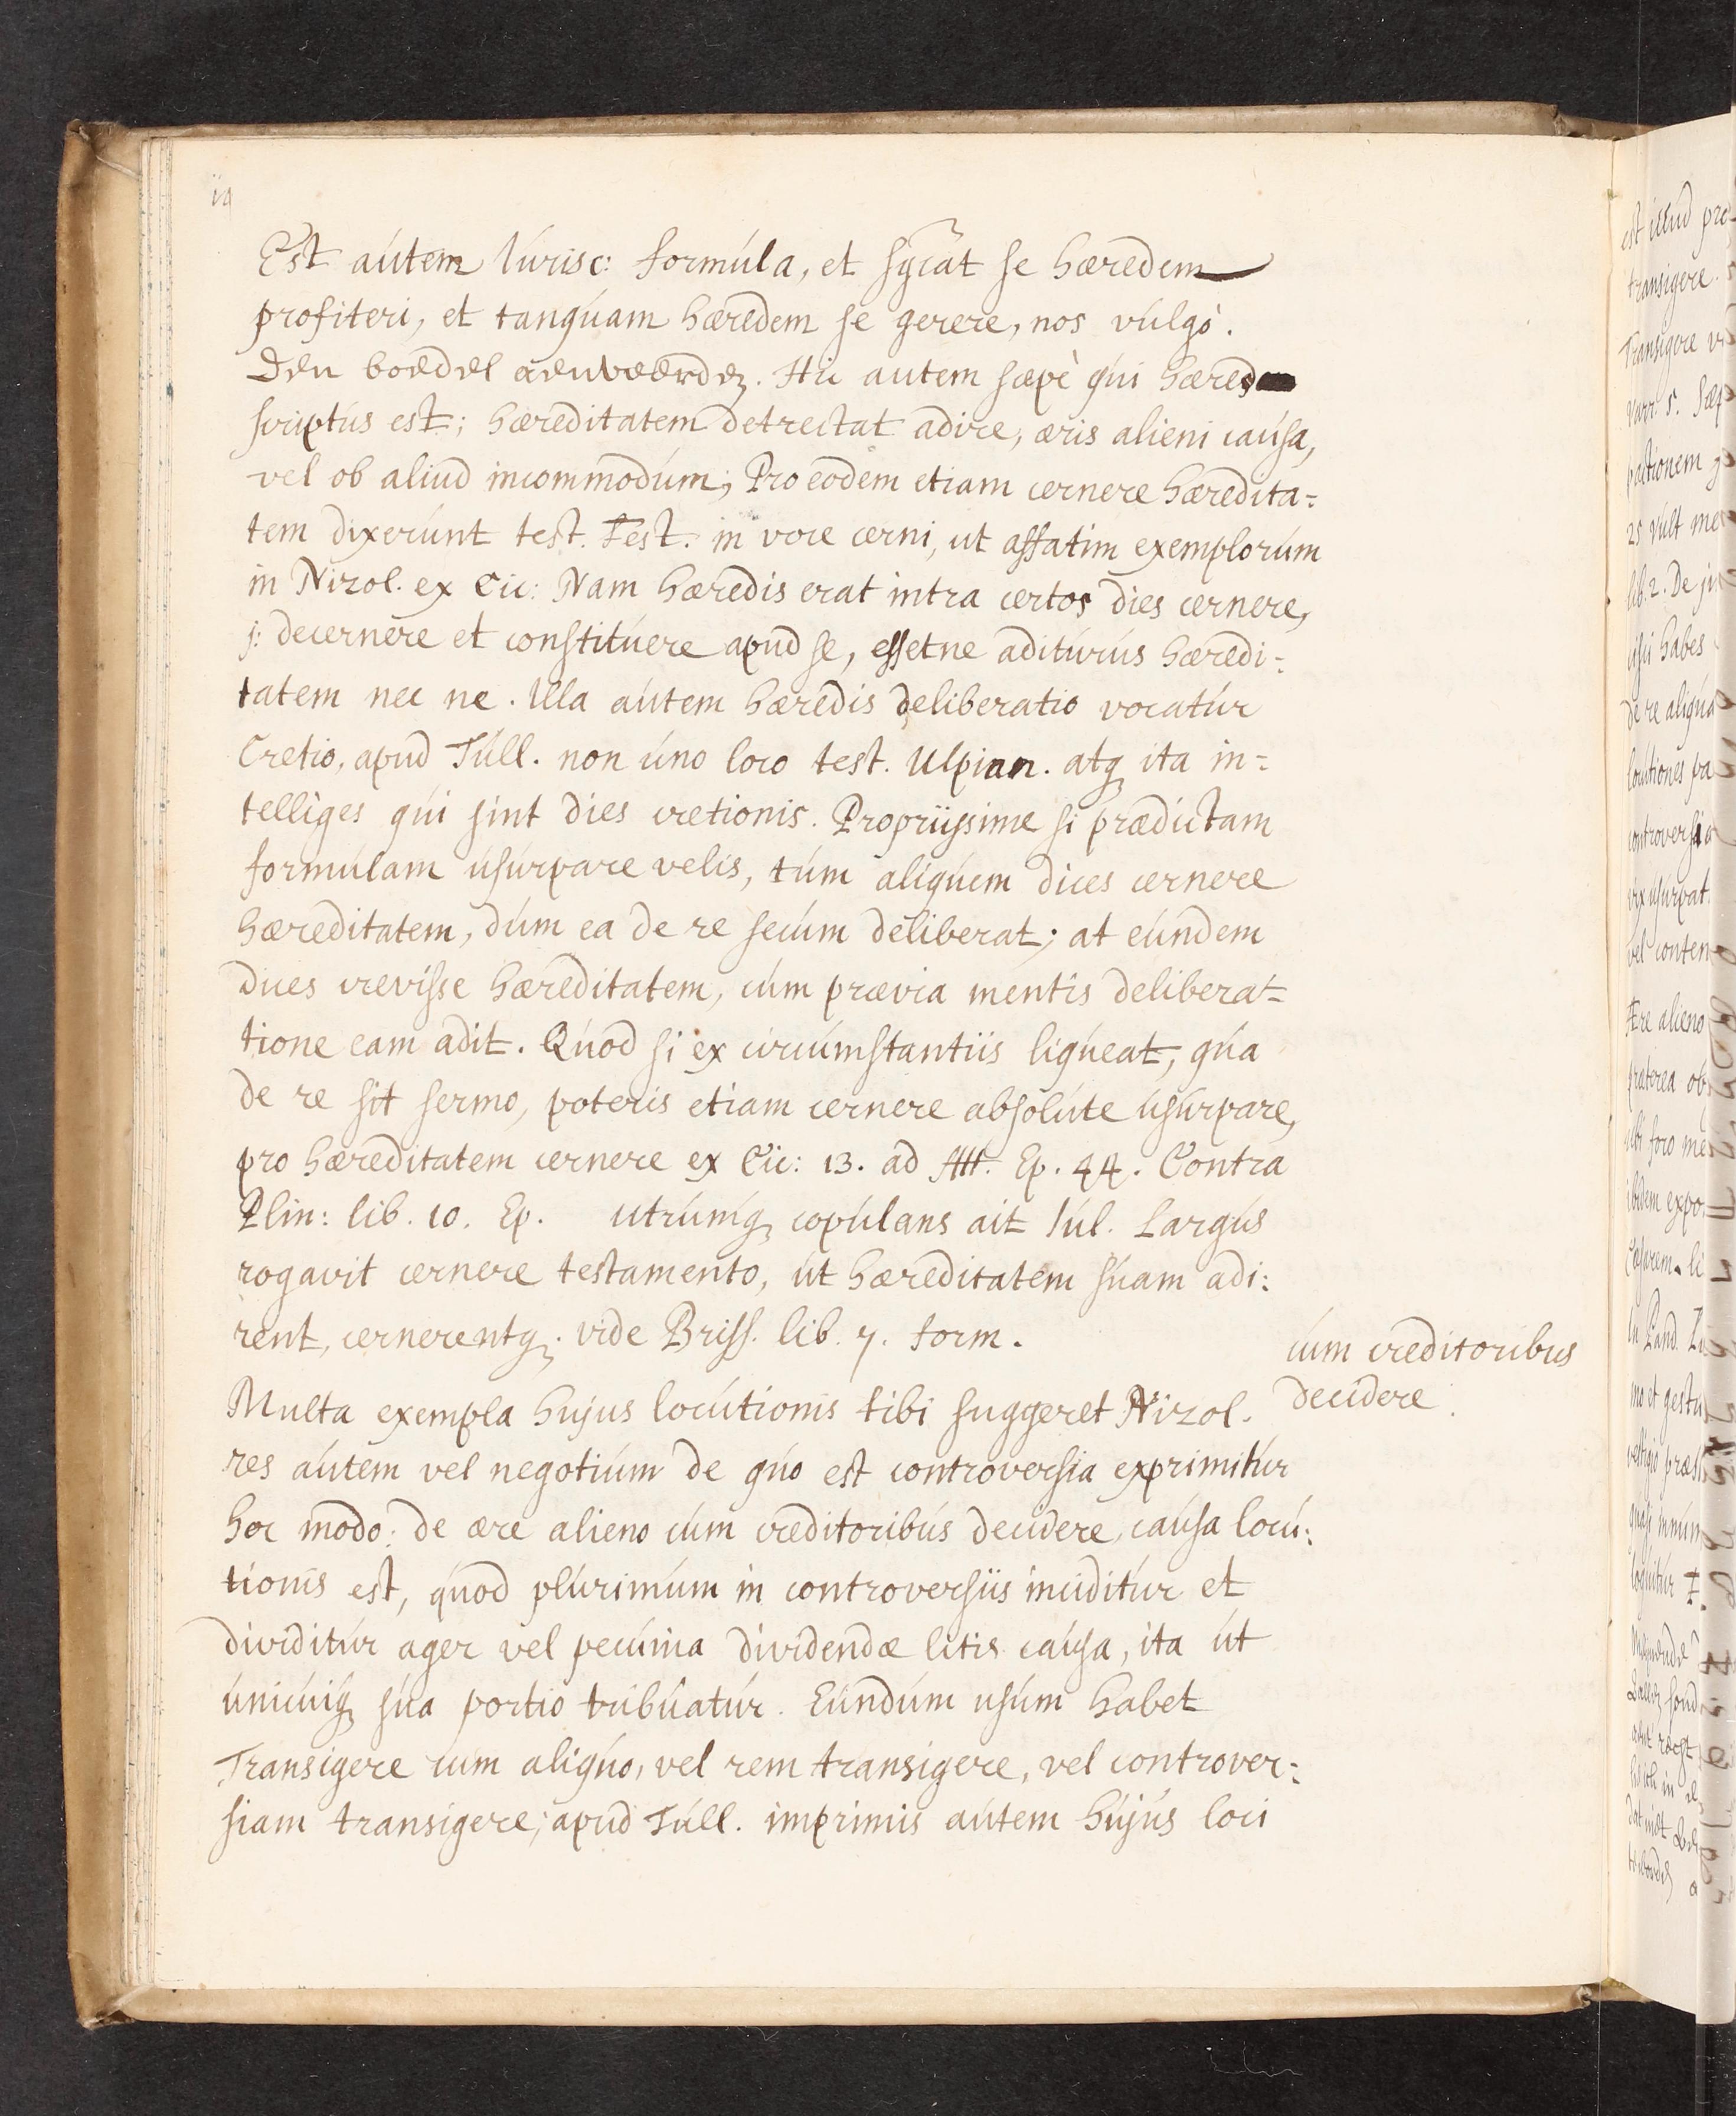 Est autem Iurisc: formula, et sgr̃at se hæredem
profiteri, et tanquam hæredem se gerere, nos vulgò.
Den boedel aenveerdẽ. Hic autem sæpè qui hæres
scriptus est; hæreditatem detrectat adire, æris alieni causa,
vel ob aliud incommodum; Pro eodem etiam cernere hæredita=
tem dixerunt test. Fest. in voce cerni, ut affatim exemplorum
in Nizol. ex Cic: Nam hæredis erat intra certos dies cernere,
j: decernere et constituere apud se, essetne aditurus hæredi=
tatem nec ne. Illa autem hæredis deliberatio vocatur
Cretio, apud Tull. non uno loco test. Ulpian. atq ita in=
telliges qui sint dies cretionis. Propriissime si prædictam
formulam usurpare velis, tum aliquem dices cernere
hæreditatem, dum ea de re secum deliberat; at eundem
dices crevisse hæreditatem, cum prævia mentis delibera=
tione eam adit. Quod si ex circumstantiis liqueat, qua
de re sit sermo, poteris etiam cernere absolute usurpare,
pro hæreditatem cernere ex Cic: 13. ad Att. Ep. 44. Contra
Plin: lib. 10. Ep. utrumq copulans ait Iul. Largus
rogavit cernere testamento, ut hæreditatem suam adi:
rent, cernerentq. vide Briss. lib. 7. form.
cum creditoribus
decidere.
Multa exempla hujus locutionis tibi suggeret Nizol.
res autem vel negotium de quo est controversia exprimitur
hoc modo: de ære alieno cum creditoribus decidere, causa locu:
tionis est, quod plurimum in controversiis inciditur et
dividitur ager vel pecunia dividendæ litis causa, ita ut
unicuiq sua portio tribuatur. Eundum usum habet
Transigere cum aliquo, vel rem transigere, vel controver:
siam transigere; apud Tull. imprimis autem hujus loci